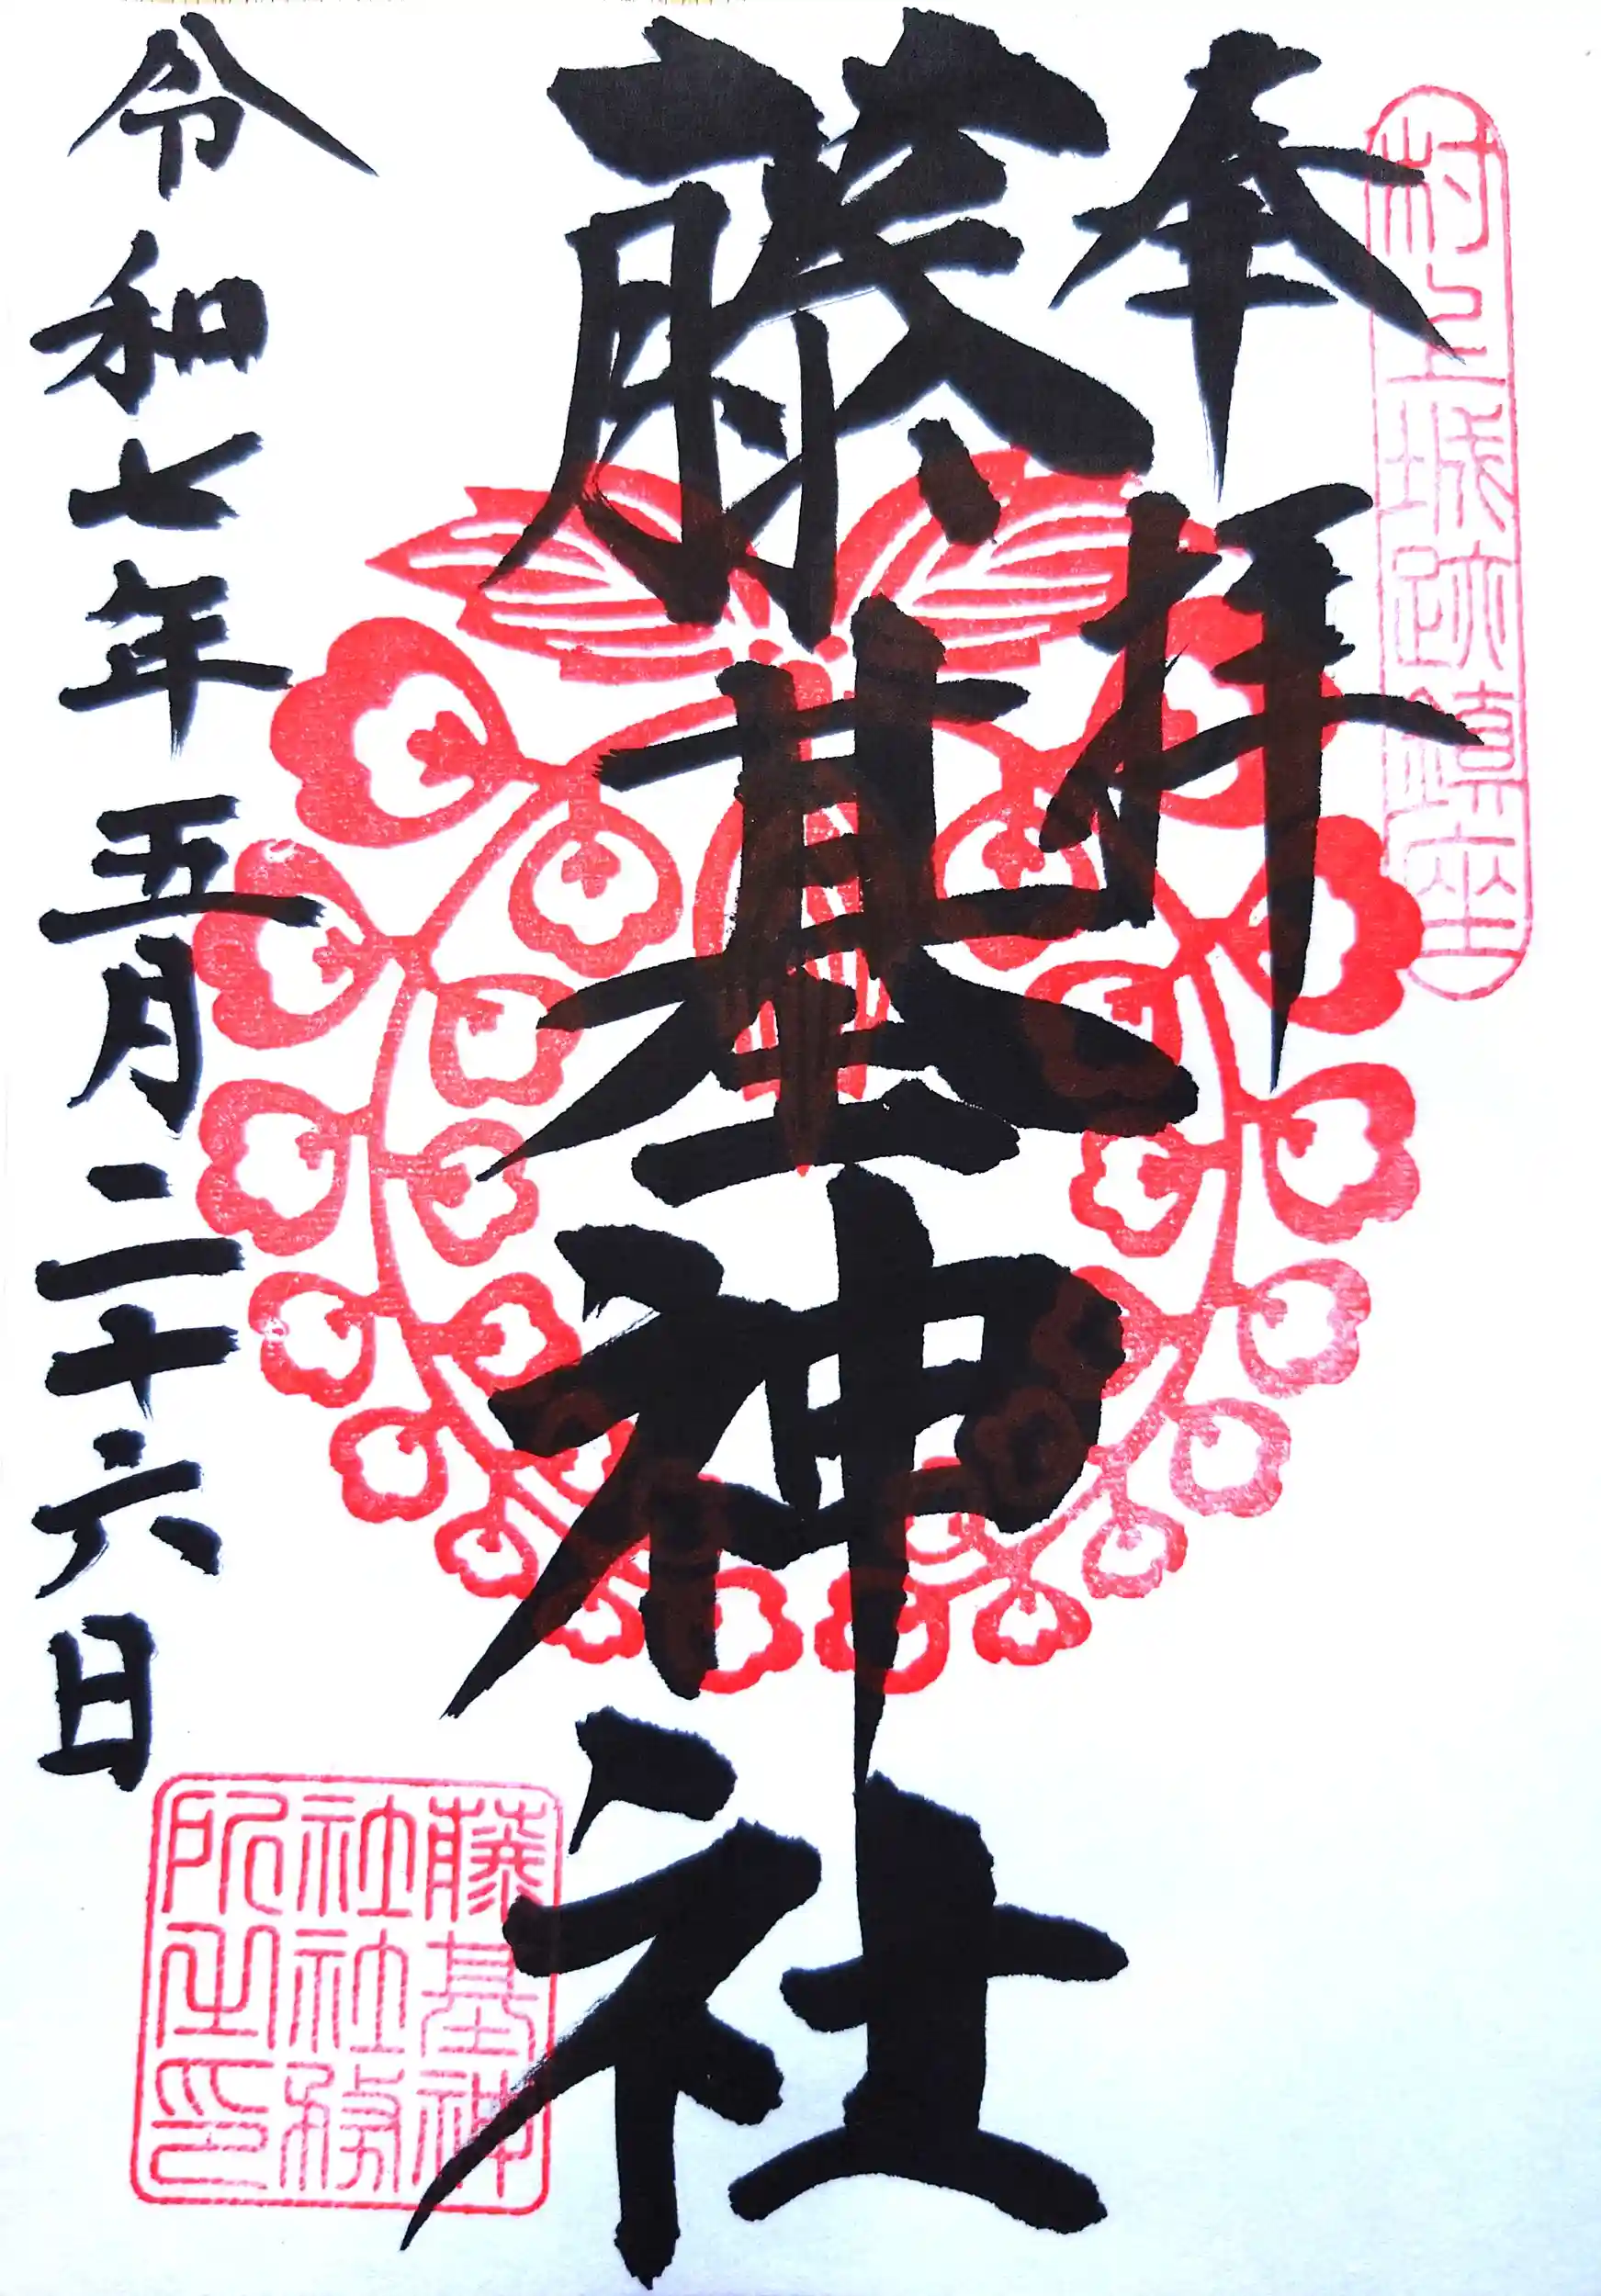 村上城跡鎮座
奉拝
藤基神社
令和七年五月二十六日
藤基神
社社務
所之印